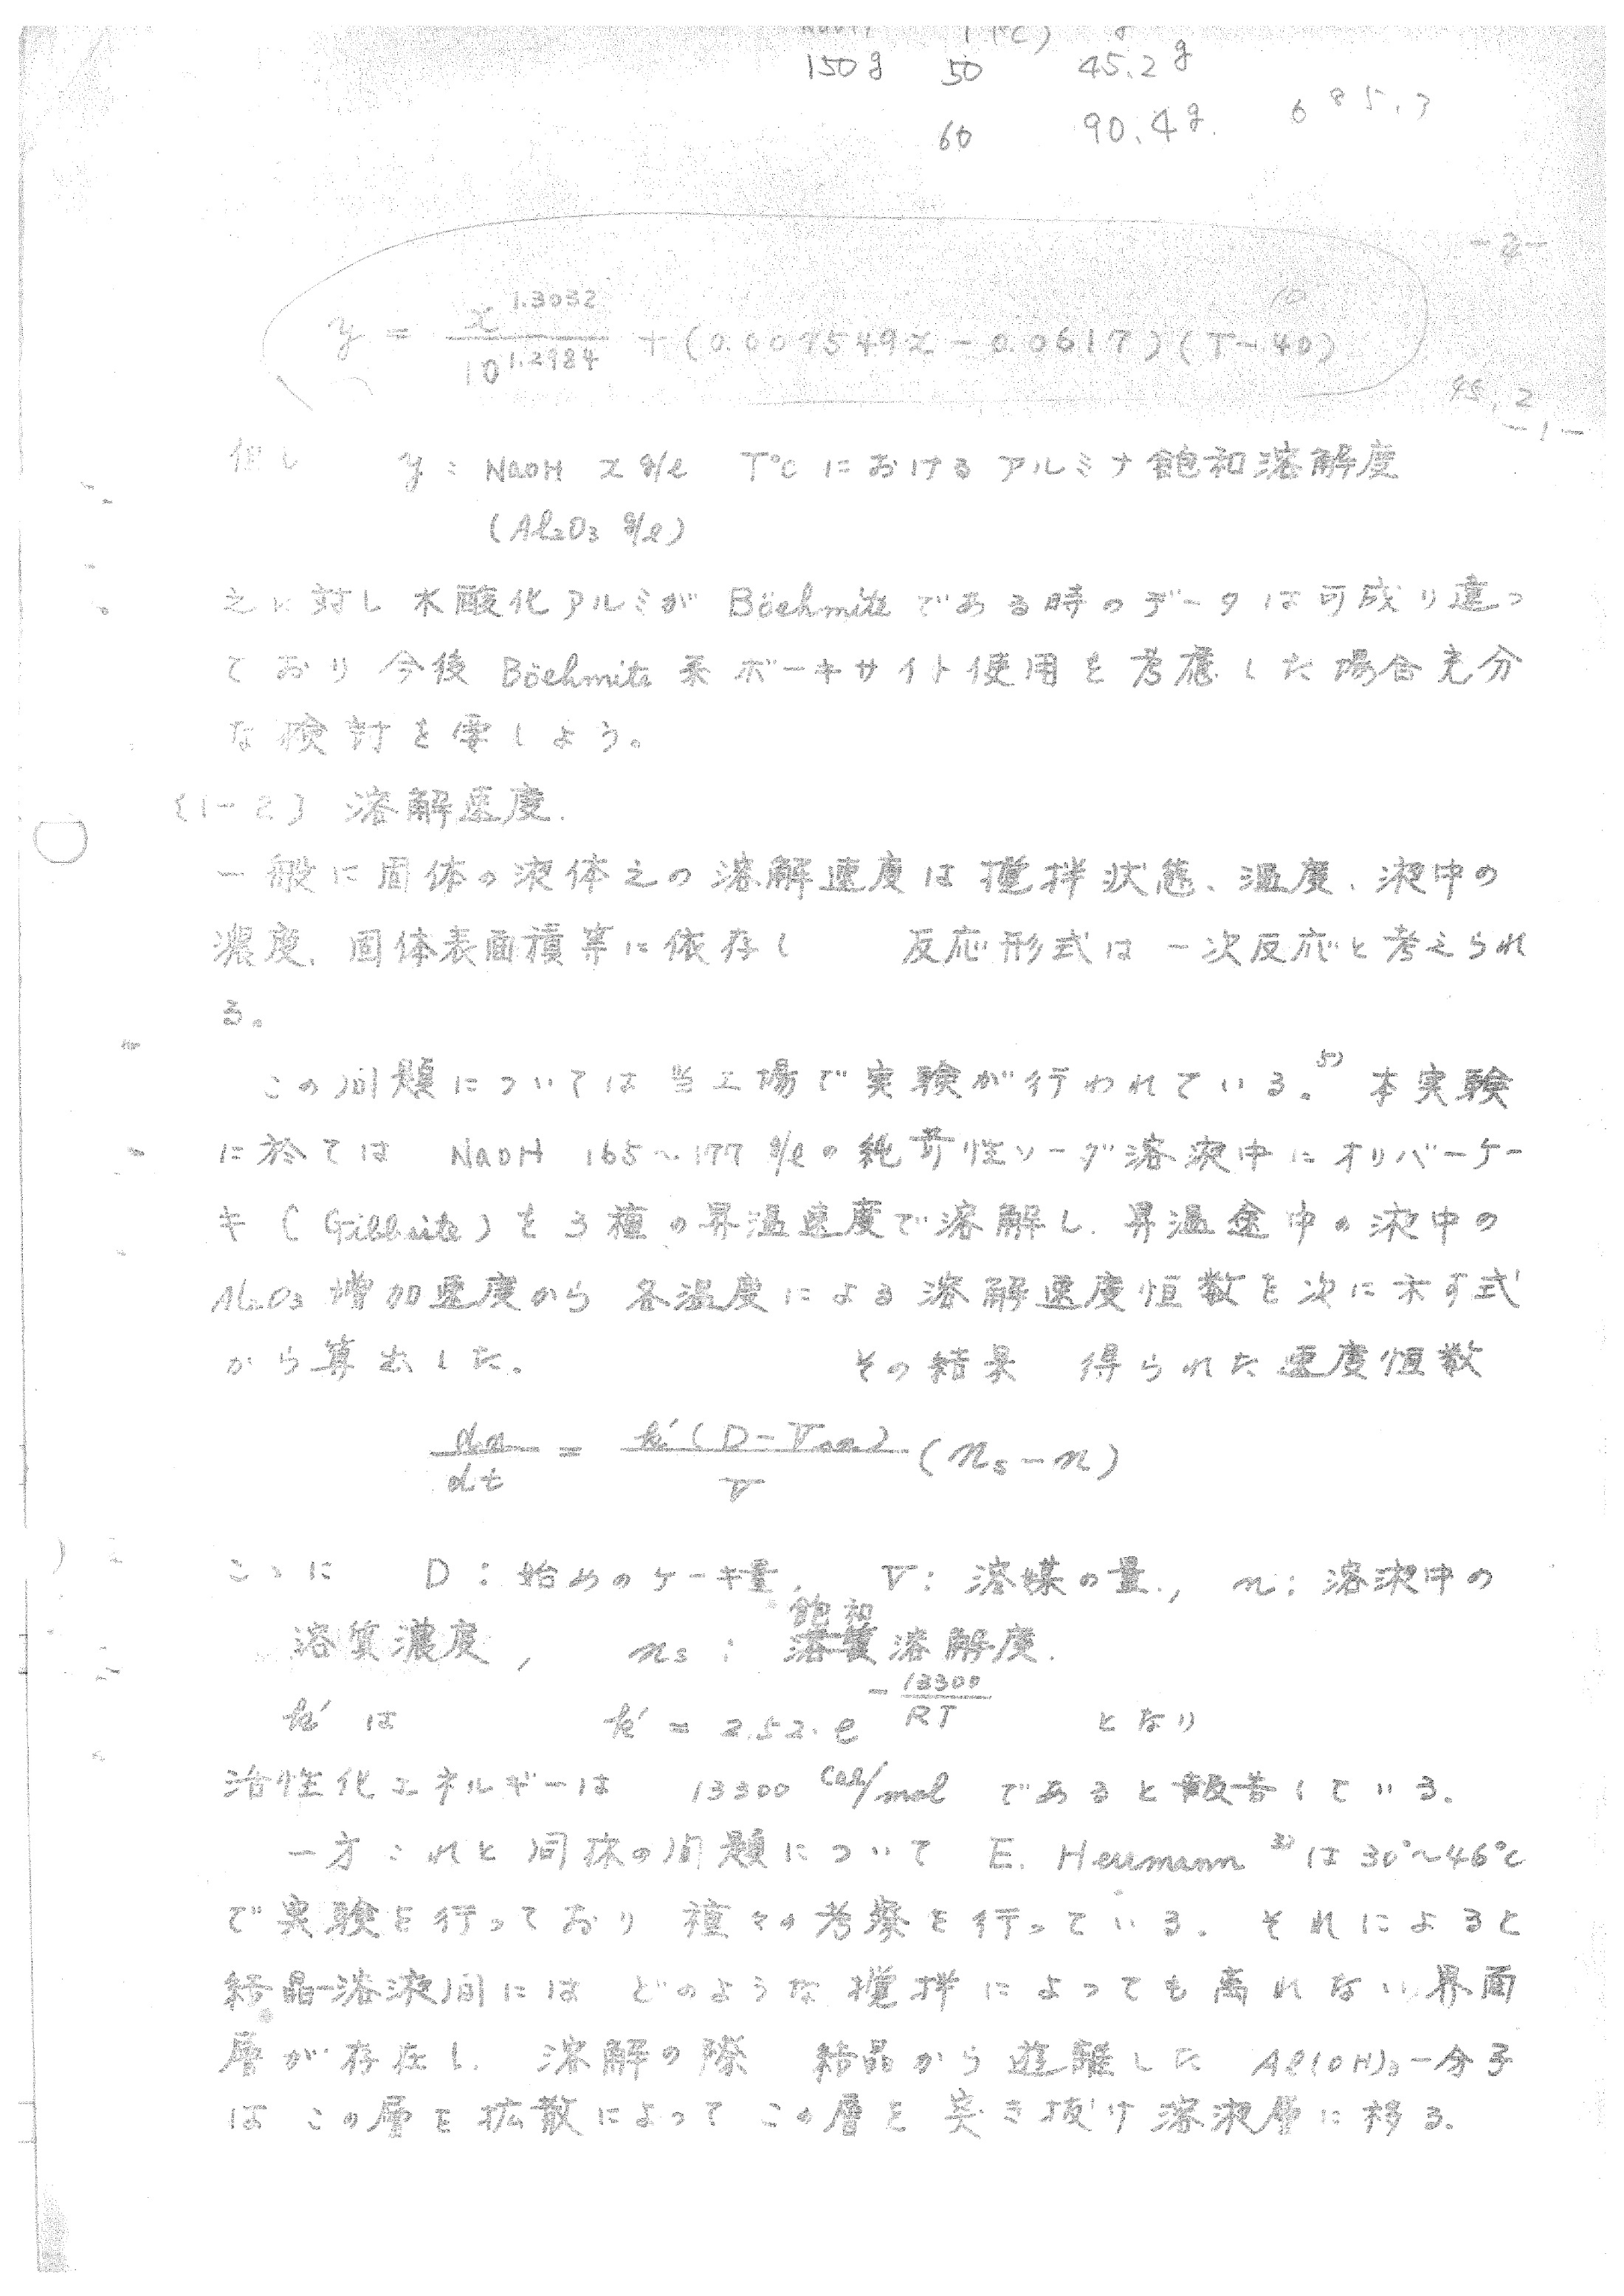 150g 50 45.2g
60 90.4g. 685.7
-2-
y = x^1.3032 / 10^1.2984 + (0.009549x - 0.0617)(T-40)
45.2
-1-
但し y : NaOH x g/l T℃ における アルミナ飽和溶解度
(Al2O3 g/l)
之に対し 水酸化アルミが Böehmite である時のデータは可成り違っ
ており 今後 Böehmite 系ボーキサイト使用を考慮した場合充分
な検討を要しよう。
(1-2) 溶解速度.
一般に固体の液体之の溶解速度は攪拌状態、温度、液中の
濃度、固体表面積等に依存し 反応形式は一次反応と考えられ
る。
この問題については当工場で実験が行われている。5) 本実験
に於ては NaOH 165~177 g/lの純苛性ソーダ溶液中にオリバーケー
キ (Gibbsite) を3種の昇温速度で溶解し、昇温途中の液中の
Al2O3 増加速度から 各温度による溶解速度恒数を次に示す式
から算出した。 その結果 得られた速度恒数
dn/dt = k'(D-Vn)/V (ns-n)
こゝに D : 始めのケーキ量, V : 溶媒の量, n : 溶液中の
飽和
溶質濃度, ns : 溶質溶解度.
k' は k' = 2.52・e^-13300/RT となり
活性化エネルギーは 13300 cal/mol であると報告している.
一方これと同様の問題について E. Herrmann 3)は30°~46℃
で実験を行っており 種々の考察を行っている. それによると
結晶-溶液間には どのような攪拌によっても離れない界面
層が存在し、溶解の際 結晶から遊離した Al(OH)3 一分子
は この層を拡散によって この層を突き抜け溶液層に移る.